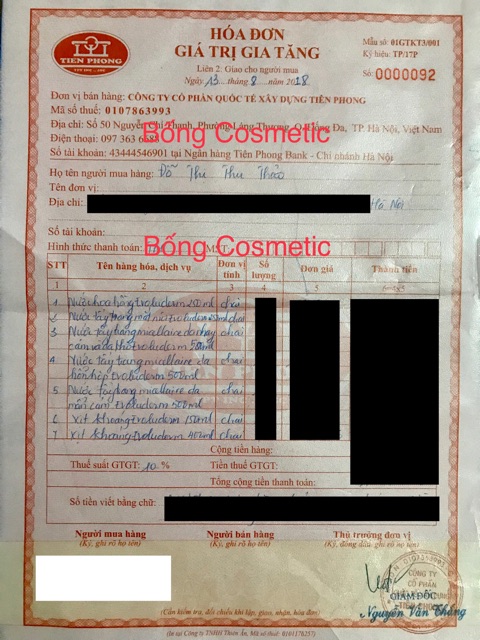 HÓA ĐƠN
GIÁ TRỊ GIA TĂNG
Liên 2: Giao cho người mua
Ngày 13 tháng 8 năm 2018
Mẫu số: 01GTKT3/001
Ký hiệu: TP/17P
Số: 0000092
TIEN PHONG
Đơn vị bán hàng: CÔNG TY CỔ PHẦN QUỐC TẾ XÂY DỰNG TIÊN PHONG
Mã số thuế: 0107863993
Địa chỉ: Số 50 Nguyễn Chí Thanh, Phường Láng Thượng, Q.Đống Đa, TP. Hà Nội, Việt Nam
Bống Cosmetic
Điện thoại: 097 363
Số tài khoản: 43444546901 tại Ngân hàng Tiên Phong Bank - Chi nhánh Hà Nội
Họ tên người mua hàng: Đỗ Thị Thu Thảo
Tên đơn vị:
Địa chỉ: Hà Nội
Số tài khoản:
Hình thức thanh toán: MST:
Bống Cosmetic
STT Tên hàng hóa, dịch vụ Đơn vị tính Số lượng Đơn giá Thành tiền
1 2 3 4 5 6=4x5
1 Nước hoa hồng evoluderm 250ml chai
2 Nước tẩy trang mắt môi evoluderm chai
3 Nước tẩy trang micellaire da nhạy chai
cảm và da khô evoluderm 500ml
4 Nước tẩy trang micellaire da chai
hỗn hợp evoluderm 500ml
5 Nước tẩy trang micellaire da chai
mẫn cảm evoluderm 500ml
6 Xịt khoáng evoluderm 150ml chai
7 Xịt khoáng evoluderm 400ml chai
Cộng tiền hàng:
Thuế suất GTGT: 10 % Tiền thuế GTGT:
Tổng cộng tiền thanh toán:
Số tiền viết bằng chữ:
Người mua hàng Người bán hàng Thủ trưởng đơn vị
(Ký, ghi rõ họ tên) (Ký, ghi rõ họ tên) (Ký, đóng dấu, ghi rõ họ tên)
CÔNG TY
CỔ PHẦN
TIÊN PHONG
GIÁM ĐỐC
Nguyễn Văn Thắng
(Cần kiểm tra, đối chiếu khi lập, giao, nhận, hóa đơn)
(In tại Công ty TNHH Thiên Ấn, Mã số thuế: 0101176257)